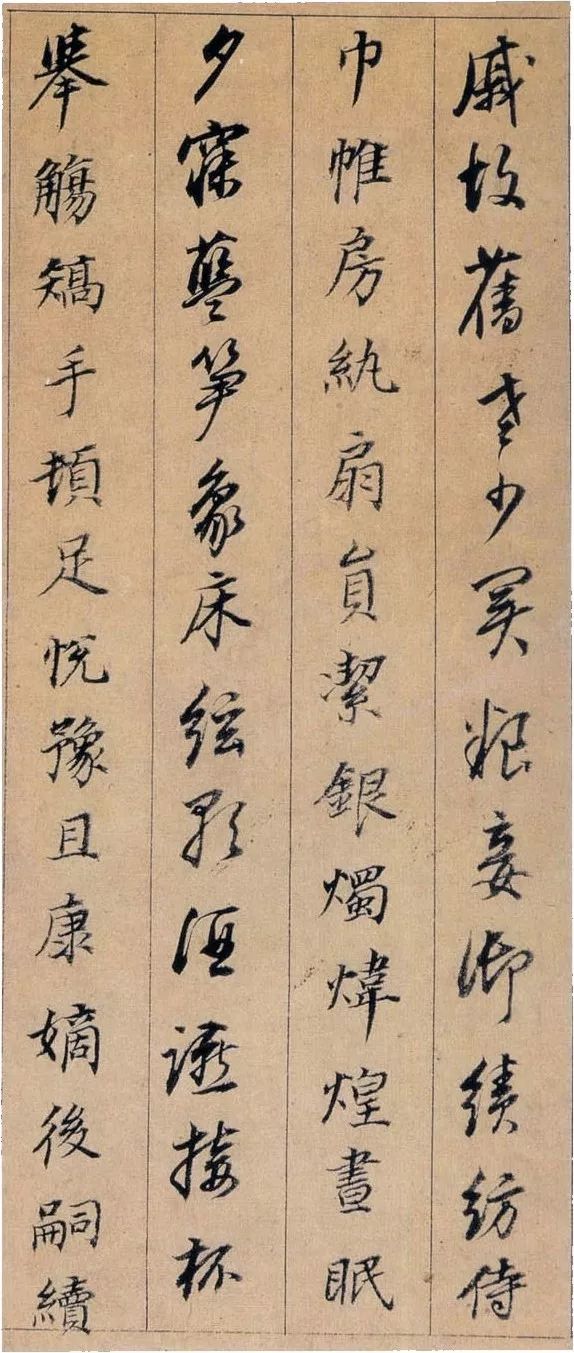 戚故舊老少異粮妾御績紡侍
巾帷房紈扇員潔銀燭煒煌晝眠
夕寐藍笋象床絃歌酒讌接杯
舉觴矯手頓足悅豫且康嫡後嗣續